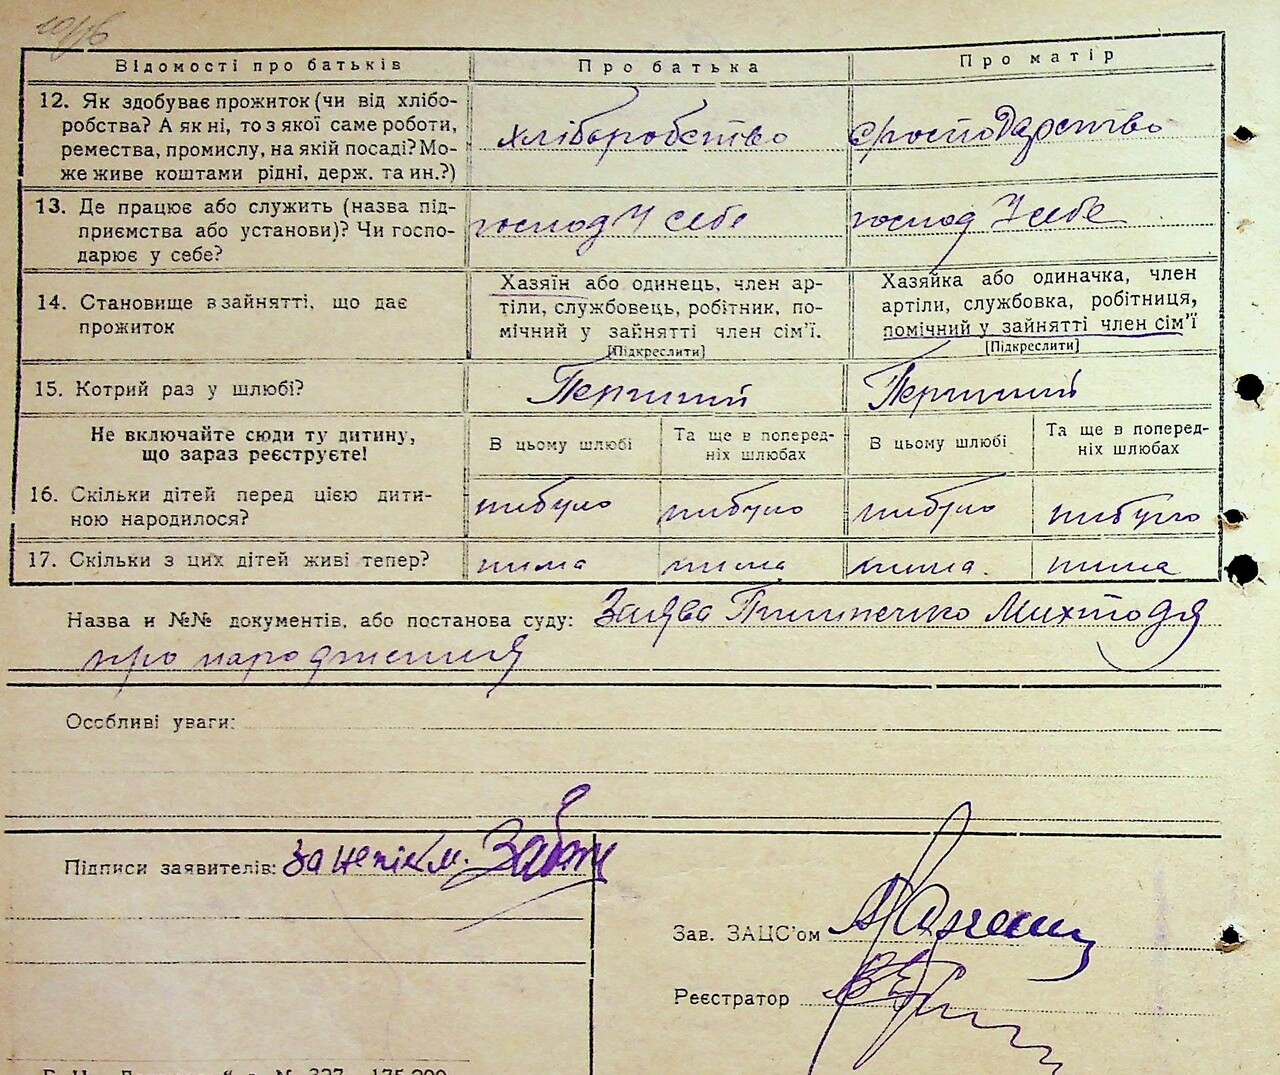 Відомості про батьків Про батька Про матір
12. Як здобуває прожиток (чи від хлібо-
робства? А як ні, то з якої саме роботи,
ремества, промислу, на якій посаді? Мо-
же живе коштами рідні, держ. та ин.?)
хліборобство
господарство
13. Де працює або служить (назва під-
приємства або установи)? Чи госпо-
дарює у себе?
господ У себе
господ У себе
14. Становище в зайнятті, що дає
прожиток
Хазяїн або одинець, член ар-
тілі, службовець, робітник, по-
мічний у зайнятті член сім'ї.
[Підкреслити]
Хазяйка або одиначка, член
артілі, службовка, робітниця,
помічний у зайнятті член сім'ї
[Підкреслити]
15. Котрий раз у шлюбі?
Перший
Перший
Не включайте сюди ту дитину,
що зараз реєструєте!
В цьому шлюбі
Та ще в поперед-
ніх шлюбах
В цьому шлюбі
Та ще в поперед-
ніх шлюбах
16. Скільки дітей перед цією дити-
ною народилося?
нибуло нибуло нибуло нибуло
17. Скільки з цих дітей живі тепер?
нима нима нима. нима
Назва и №№ документів, або постанова суду: Заява
про народження
Особливі уваги:
Підписи заявителів: за непікм.
Зав. ЗАЦС'ом
Реєстратор
№ 327 175.200